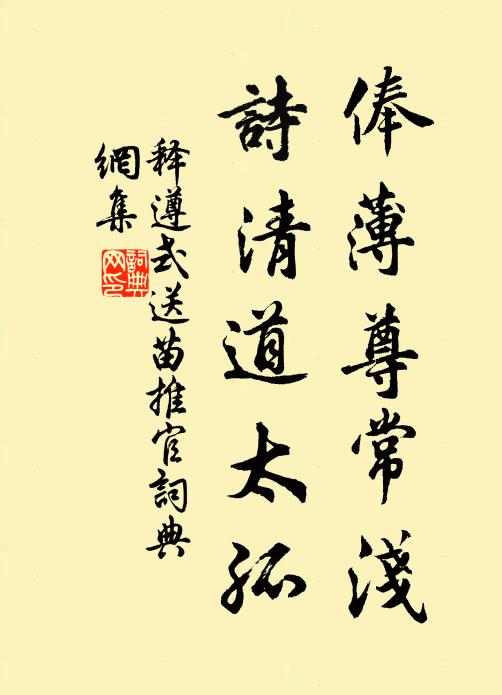 俸薄尊常淺
詩清道太孤
释遵式送苗推官詞典
網集
詞典
网印